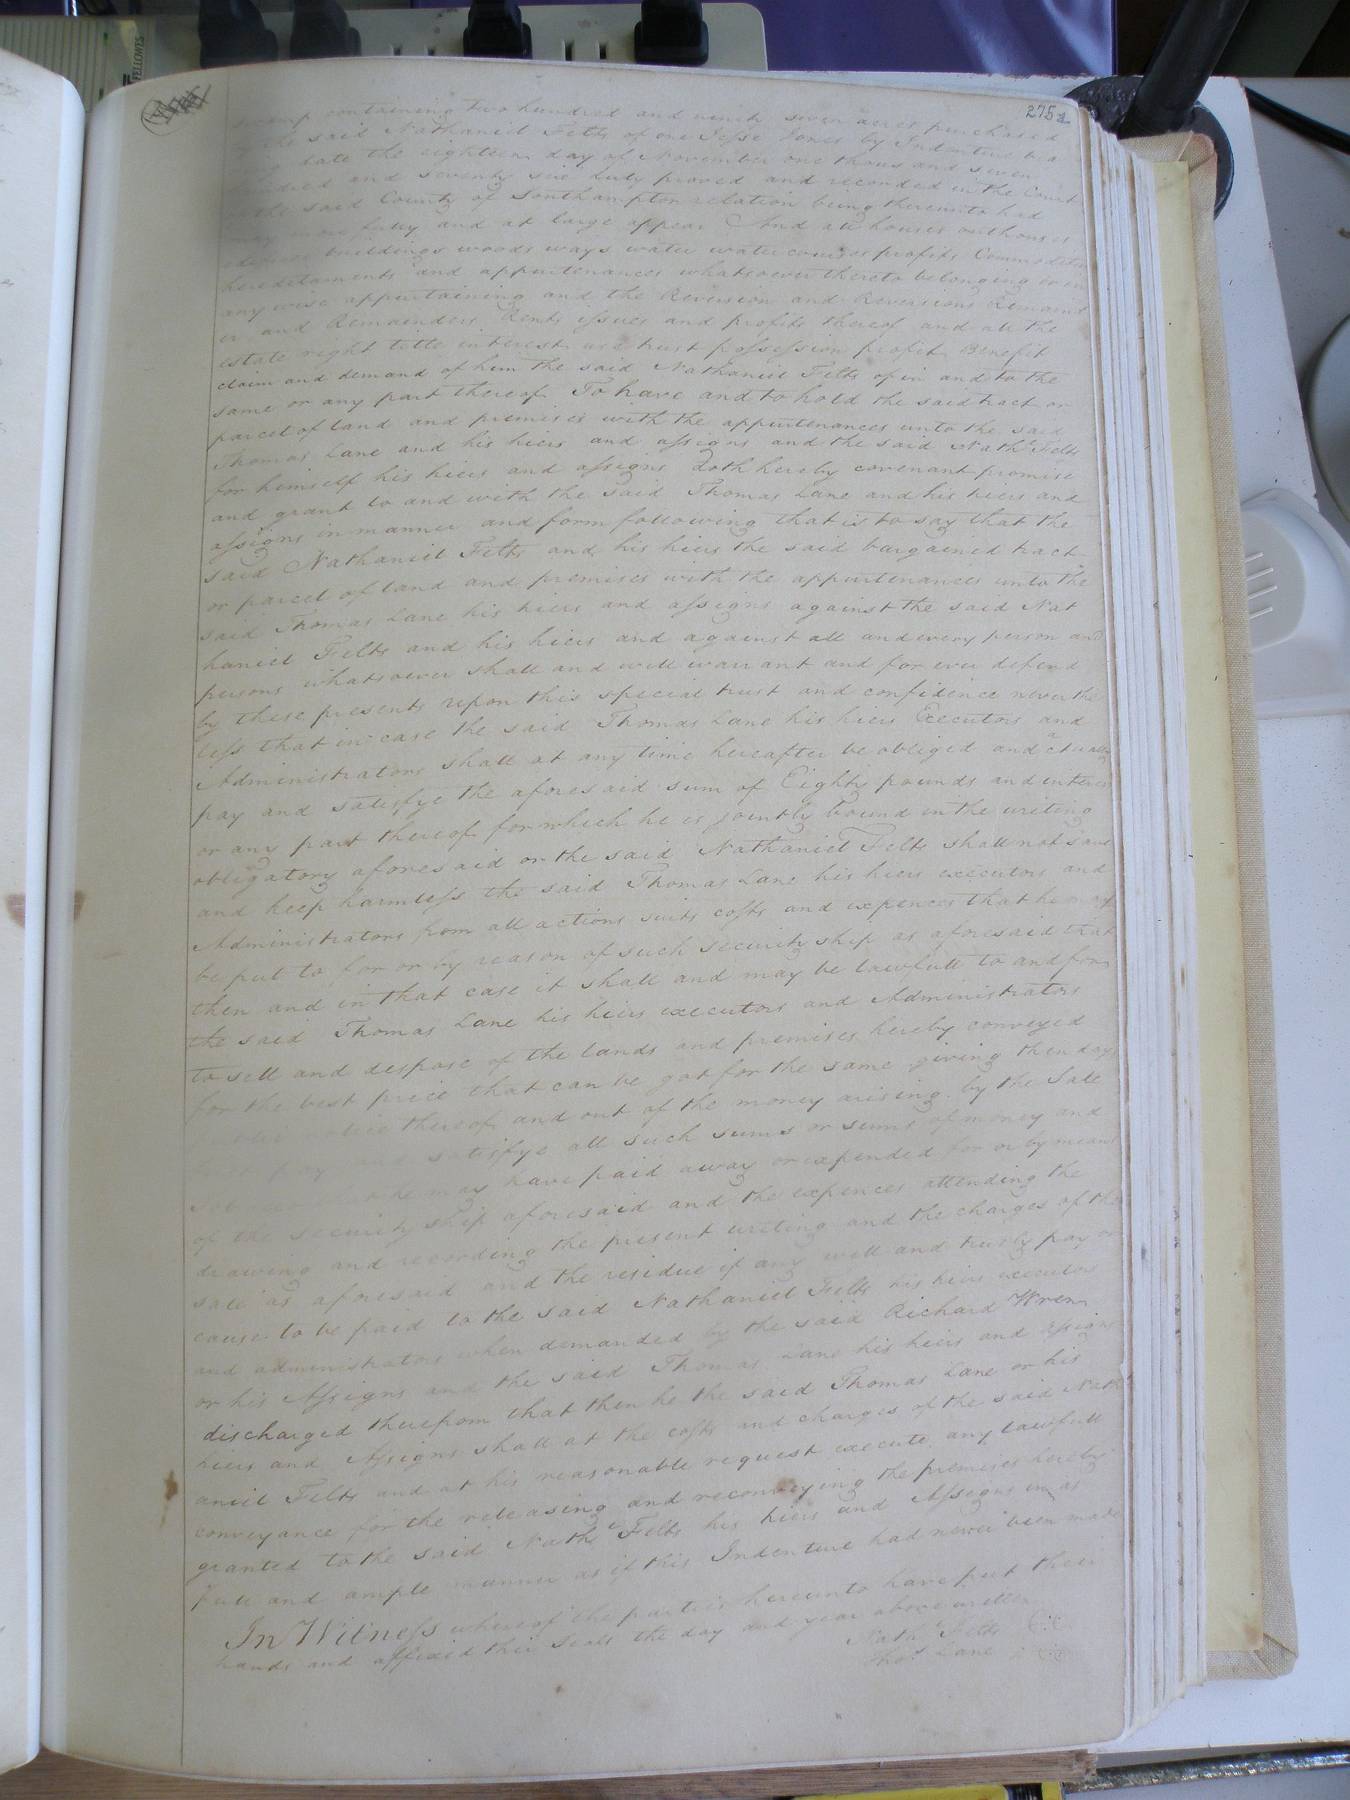 275
swamp containing two hundred and ninety seven acres purchased
by the said Nathaniel Felts of one Jesse Jones by Indenture bea
date the eighteen day of November one thous and seven
hundred and seventy six duly proved and recorded in the Court
of the said County of Southampton relation being thereunto had
may more fully and at large appear And all houses outhouses
edifices buildings woods ways water watercourses profits Commodities
hereditaments and appurtenances whatsoever thereto belonging or in
any wise appertaining and the Reversion and Reversions Remaind
er and Remainders Rents issues and profits thereof and all the
estate right title interest use trust possession profit Benefit
claim and demand of him the said Nathaniel Felts of in and to the
same or any part thereof To have and to hold the said tract or
parcel of land and premises with the appurtenances unto the said
Thomas Lane and his heirs and assigns and the said Nathl Felts
for himself his heirs and assigns doth hereby covenant promise
and grant to and with the said Thomas Lane and his heirs and
assigns in manner and form following that is to say that the
said Nathaniel Felts and his heirs the said bargained tract
or parcel of land and premises with the appurtenances unto the
said Thomas Lane his heirs and assigns against the said Nat
haniel Felts and his heirs and against all and every person and
persons whatsoever shall and will warrant and for ever defend
by these presents upon this special trust and confidence never the
less that in case the said Thomas Lane his heirs Executors and
Administrators shall at any time hereafter be obliged and actually
pay and satisfye the aforesaid sum of Eighty pounds and interest
or any part thereof for which he is jointly bound in the writing
obligatory aforesaid or the said Nathaniel Felts shall not save
and keep harmless the said Thomas Lane his heirs executors and
Administrators from all actions suits costs and expences that he may
be put to for or by reason of such security ship as aforesaid that
then and in that case it shall and may be lawfull to and for
the said Thomas Lane his heirs executors and Administrators
to sell and dispose of the lands and premises hereby conveyed
for the best price that can be got for the same giving then days
notice thereof and out of the money arising by the Sale
pay and satisfye all such sums or sums of money and
he may have paid away or expended for or by means
of the security ship aforesaid and the expences attending the
drawing and recording the present writing and the charges of the
sale as aforesaid and the residue if any well and truly pay or
cause to be paid to the said Nathaniel Felts his heirs executors
and administrators when demanded by the said Richard Wren
or his Assigns and the said Thomas Lane his heirs and Assigns
discharged therefrom that then he the said Thomas Lane or his
heirs and Assigns shall at the costs and charges of the said Nath
aniel Felts and at his reasonable request execute any lawfull
conveyance for the releasing and reconveying the premises hereby
granted to the said Nathl Felts his heirs and Assigns in as
full and ample manner as if this Indenture had never been made
In Witness whereof the parties hereunto have put their
hands and affixed their Seals the day and year above written
Nathl Felts
Thos Lane
FELLOWES